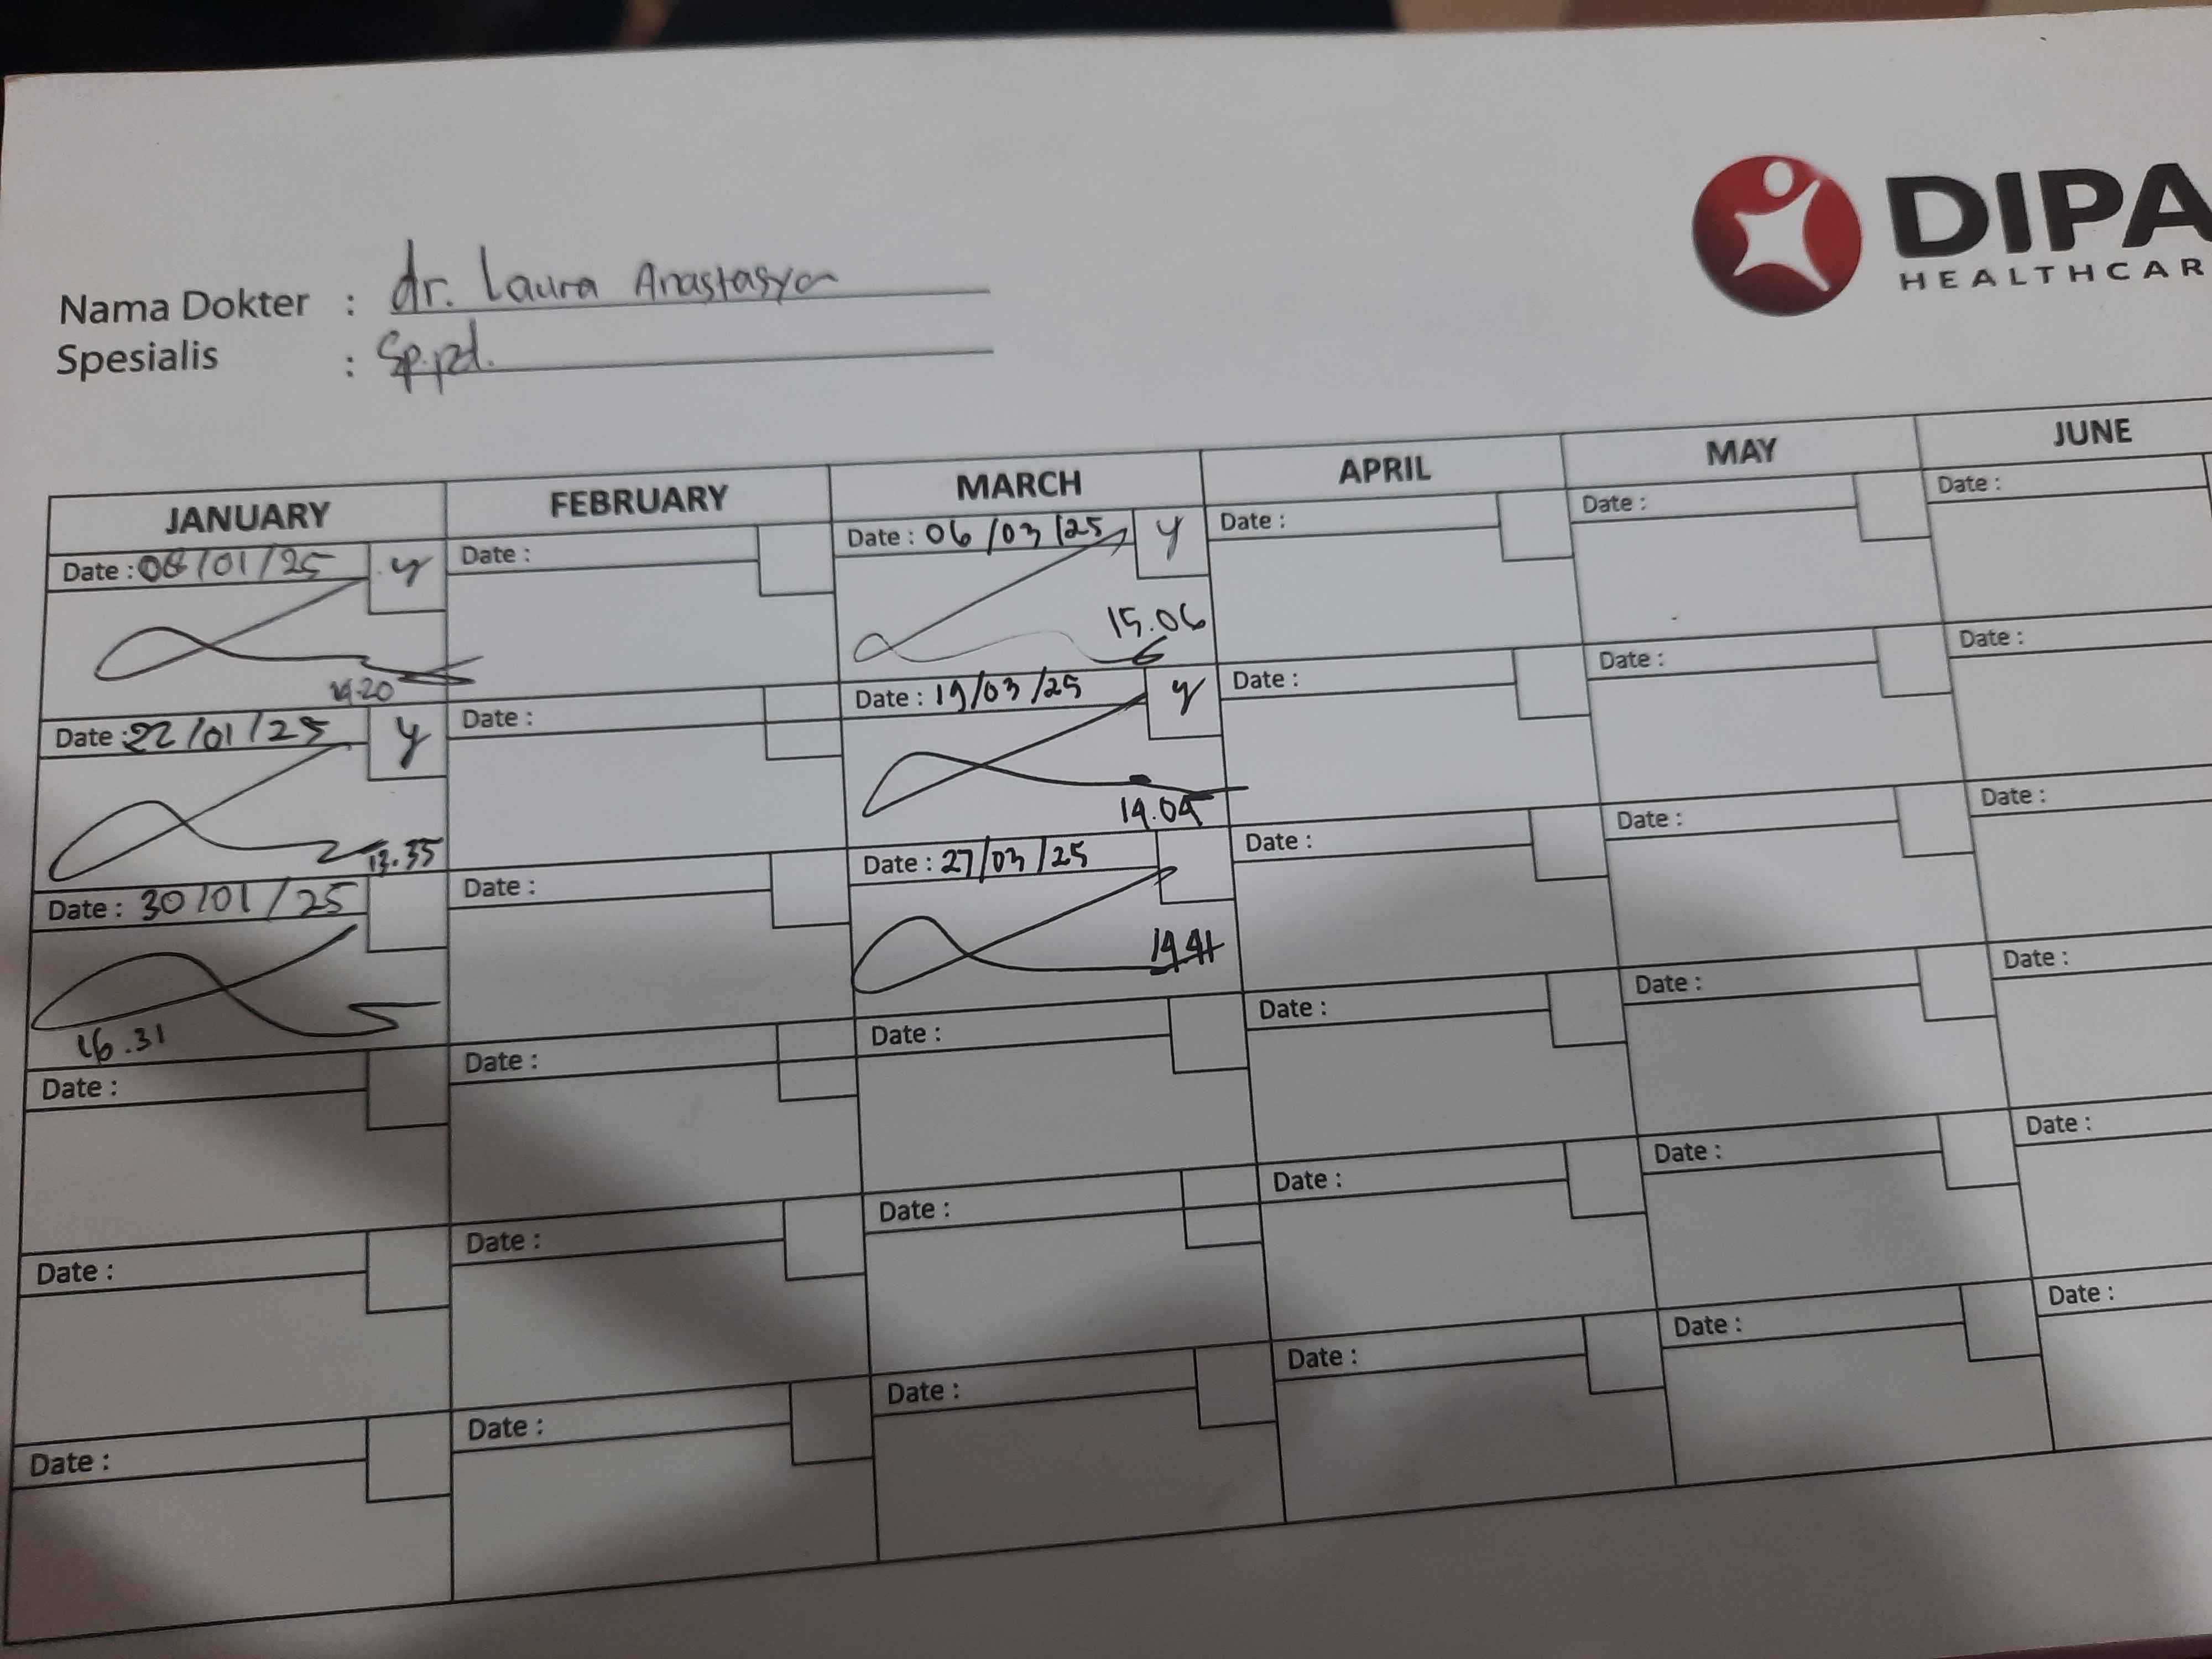 DIPA
HEALTHCAR
Nama Dokter : dr. Laura Anastasya
Spesialis : Sp.pd.
JANUARY FEBRUARY MARCH APRIL MAY JUNE
Date : 08/01/25 y Date : Date : 06/03/25 y Date : Date : Date :
14.20 15.06
Date : 22/01/25 y Date : Date : 19/03/25 y Date : Date : Date :
13.35 14.05
Date : 30/01/25 Date : Date : 27/03/25 Date : Date : Date :
16.31 14.41
Date : Date : Date : Date : Date : Date :
Date : Date : Date : Date : Date : Date :
Date : Date : Date : Date : Date : Date :